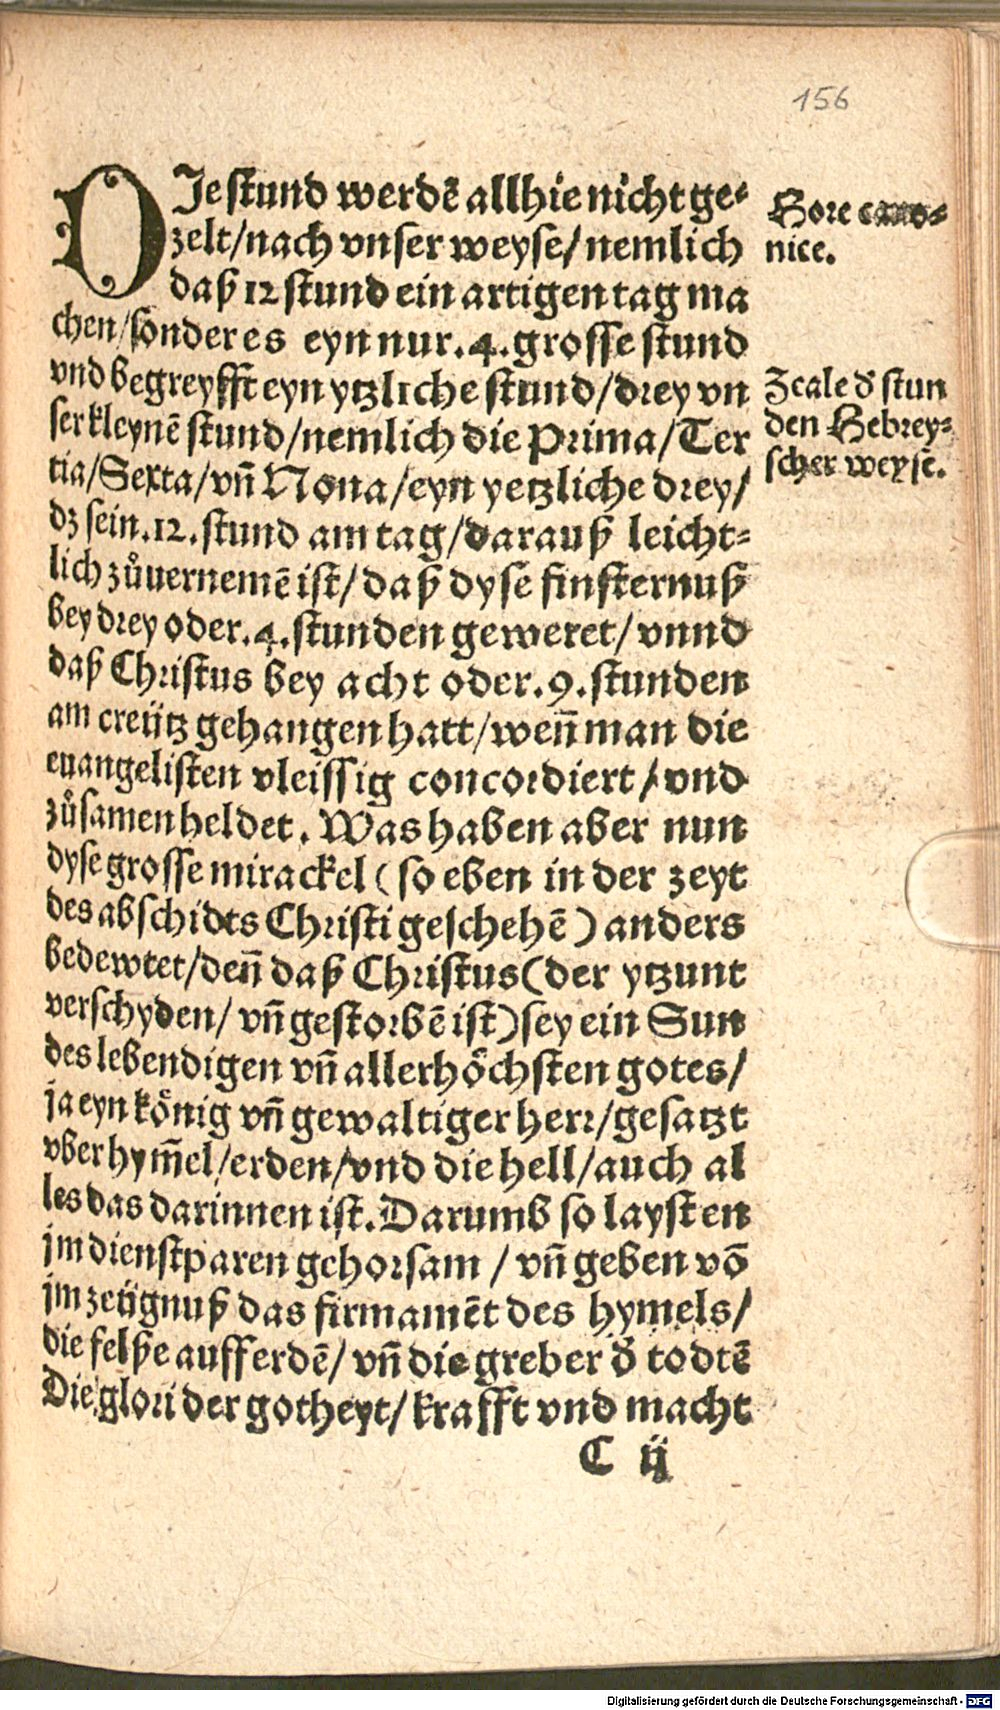 156
DIe stund werdē allhie nicht ge⸗
zelt/nach vnser weyse/nemlich
daß 12 stund ein artigen tag ma
chen/sonder es eyn nur .4. grosse stund
vnd begreyfft eyn ytzliche stund/drey vn
ser kleynē stund/nemlich die Prima/Ter
tia/Sexta/vñ Nona/eyn yetzliche drey/
dz sein .12. stund am tag/darauß leicht⸗
lich zůuernemē ist/daß dyse finsternuß
bey drey oder .4. stunden geweret/vnnd
daß Christus bey acht oder .9. stunden
am creütz gehangen hatt/weñ man die
euangelisten vleissig concordiert/vnd
zůsamen heldet. Was haben aber nun
dyse grosse mirackel (so eben in der zeyt
des abschidts Christi geschehē) anders
bedewtet/deñ daß Christus (der ytzunt
verschyden/vñ gestorbē ist) sey ein Sun
des lebendigen vñ allerhöchsten gotes/
ja eyn könig vñ gewaltiger herr/gesatzt
vber hym̄el/erden/vnd die hell/auch al
les das darinnen ist. Darumb so laysten
jm dienstparen gehorsam/vñ geben vō
jm zeügnuß das firmamēt des hymels/
die felße auff erdē/vñ die greber d̄ todtē
Die glori der gotheyt/krafft vnd macht
C ij
Hore cano⸗
nice.
Zcale d̄ stun
den Hebrey⸗
scher weysē.
Digitalisierung gefördert durch die Deutsche Forschungsgemeinschaft - DFG